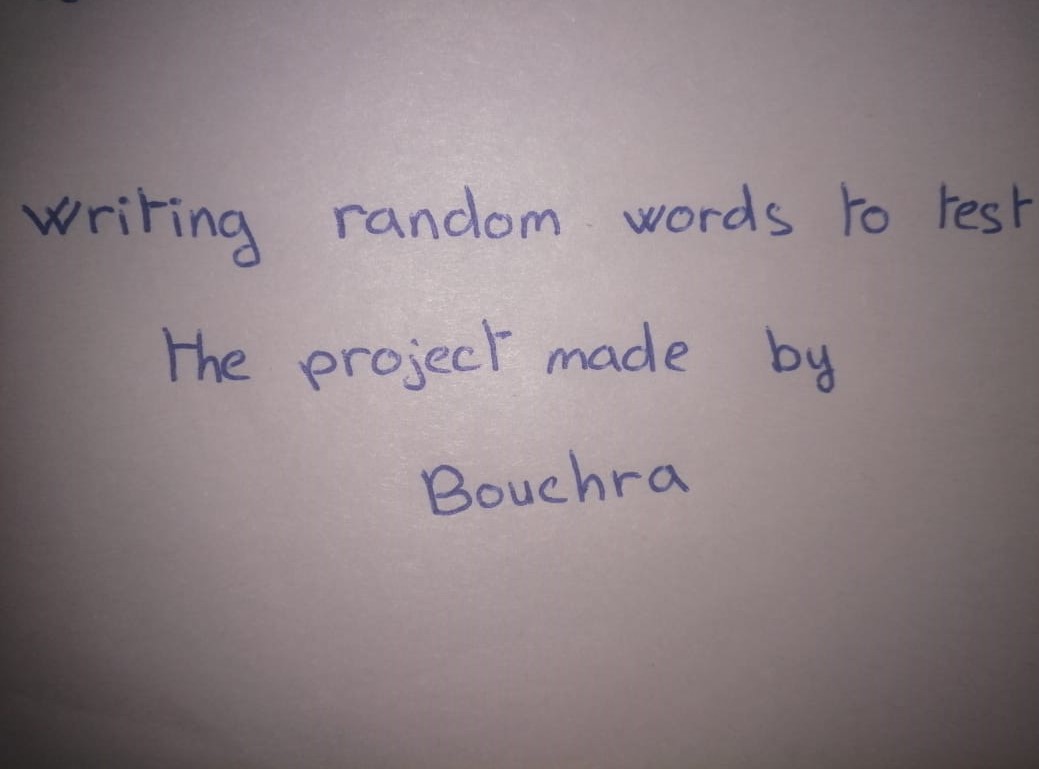 writing random words to test
the project made by
Bouchra